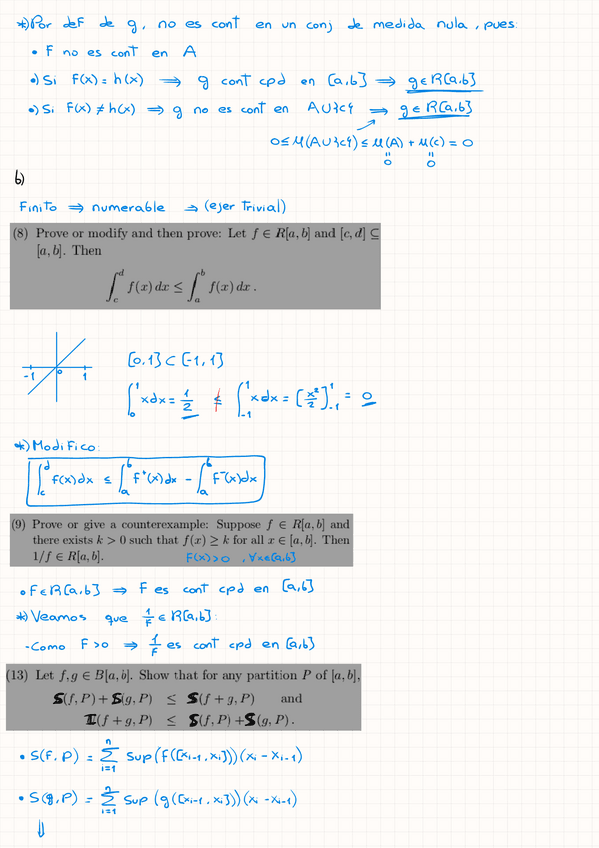 *) Por def de g, no es cont en un conj de medida nula, pues:
• F no es cont en A
•) Si F(x) = h(x) ⟹ g cont cpd en [a,b] ⟹ g ∈ R[a,b]
•) Si F(x) ≠ h(x) ⟹ g no es cont en A∪{c} ⟹ g ∈ R[a,b]
0 ≤ μ(A∪{c}) ≤ μ(A) + μ(c) = 0
0 0
b)
Finito ⟹ numerable ⟹ (ejer trivial)
(8) Prove or modify and then prove: Let f ∈ R[a, b] and [c, d] ⊆
[a, b]. Then
∫_c^d f(x) dx ≤ ∫_a^b f(x) dx .
-1 0 1
[0,1] ⊂ [-1,1]
∫_0^1 x dx = 1/2 ≰ ∫_{-1}^1 x dx = [x²/2]_{-1}^1 = 0
*) Modifico:
∫_c^d f(x)dx ≤ ∫_a^b f⁺(x)dx - ∫_a^b f⁻(x)dx
(9) Prove or give a counterexample: Suppose f ∈ R[a, b] and
there exists k > 0 such that f(x) ≥ k for all x ∈ [a, b]. Then
1/f ∈ R[a, b]. F(x)>0, ∀x∈[a,b]
• F∈R[a,b] ⟹ F es cont cpd en [a,b]
*) Veamos que 1/F ∈ R[a,b]:
- Como F>0 ⟹ 1/F es cont cpd en [a,b]
(13) Let f, g ∈ B[a, b]. Show that for any partition P of [a, b],
S(f, P) + S(g, P) ≤ S(f + g, P) and
(f + g, P) ≤ S(f, P) + S(g, P) .
• S(F, P) = ∑_{i=1}^n Sup(f([x_{i-1}, x_i]))(x_i - x_{i-1})
• S(g, P) = ∑_{i=1}^n Sup(g([x_{i-1}, x_i]))(x_i - x_{i-1})
⇓